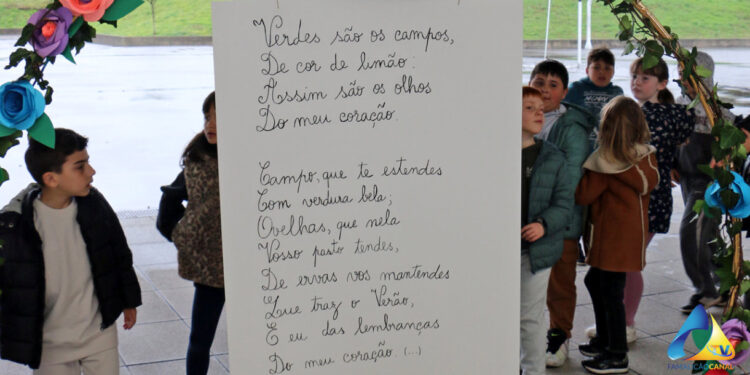 Verdes são os campos,
De cor de limão:
Assim são os olhos
Do meu coração.
Campo, que te estendes
Com verdura bela;
Ovelhas, que nela
Vosso pasto tendes,
De ervas vos mantendes
Que traz o Verão,
E eu das lembranças
Do meu coração. (...)
FAMALICÃOCANAL